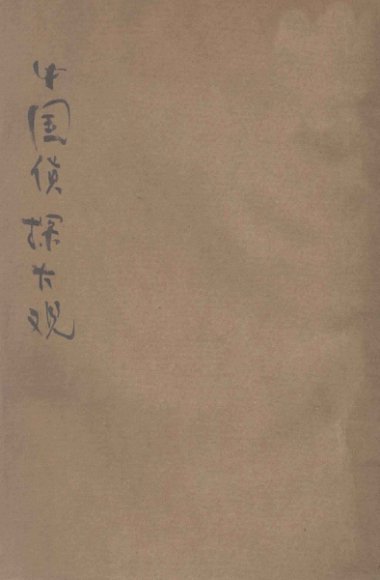 中国侦探大观